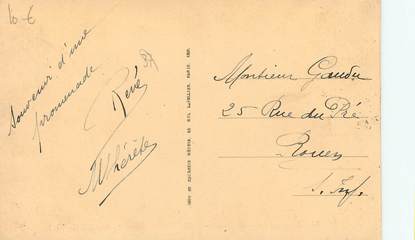 10 €
Souvenir d'une
promenade
René
Monsieur
25 Rue du Pré
Rouen
S. Inf.